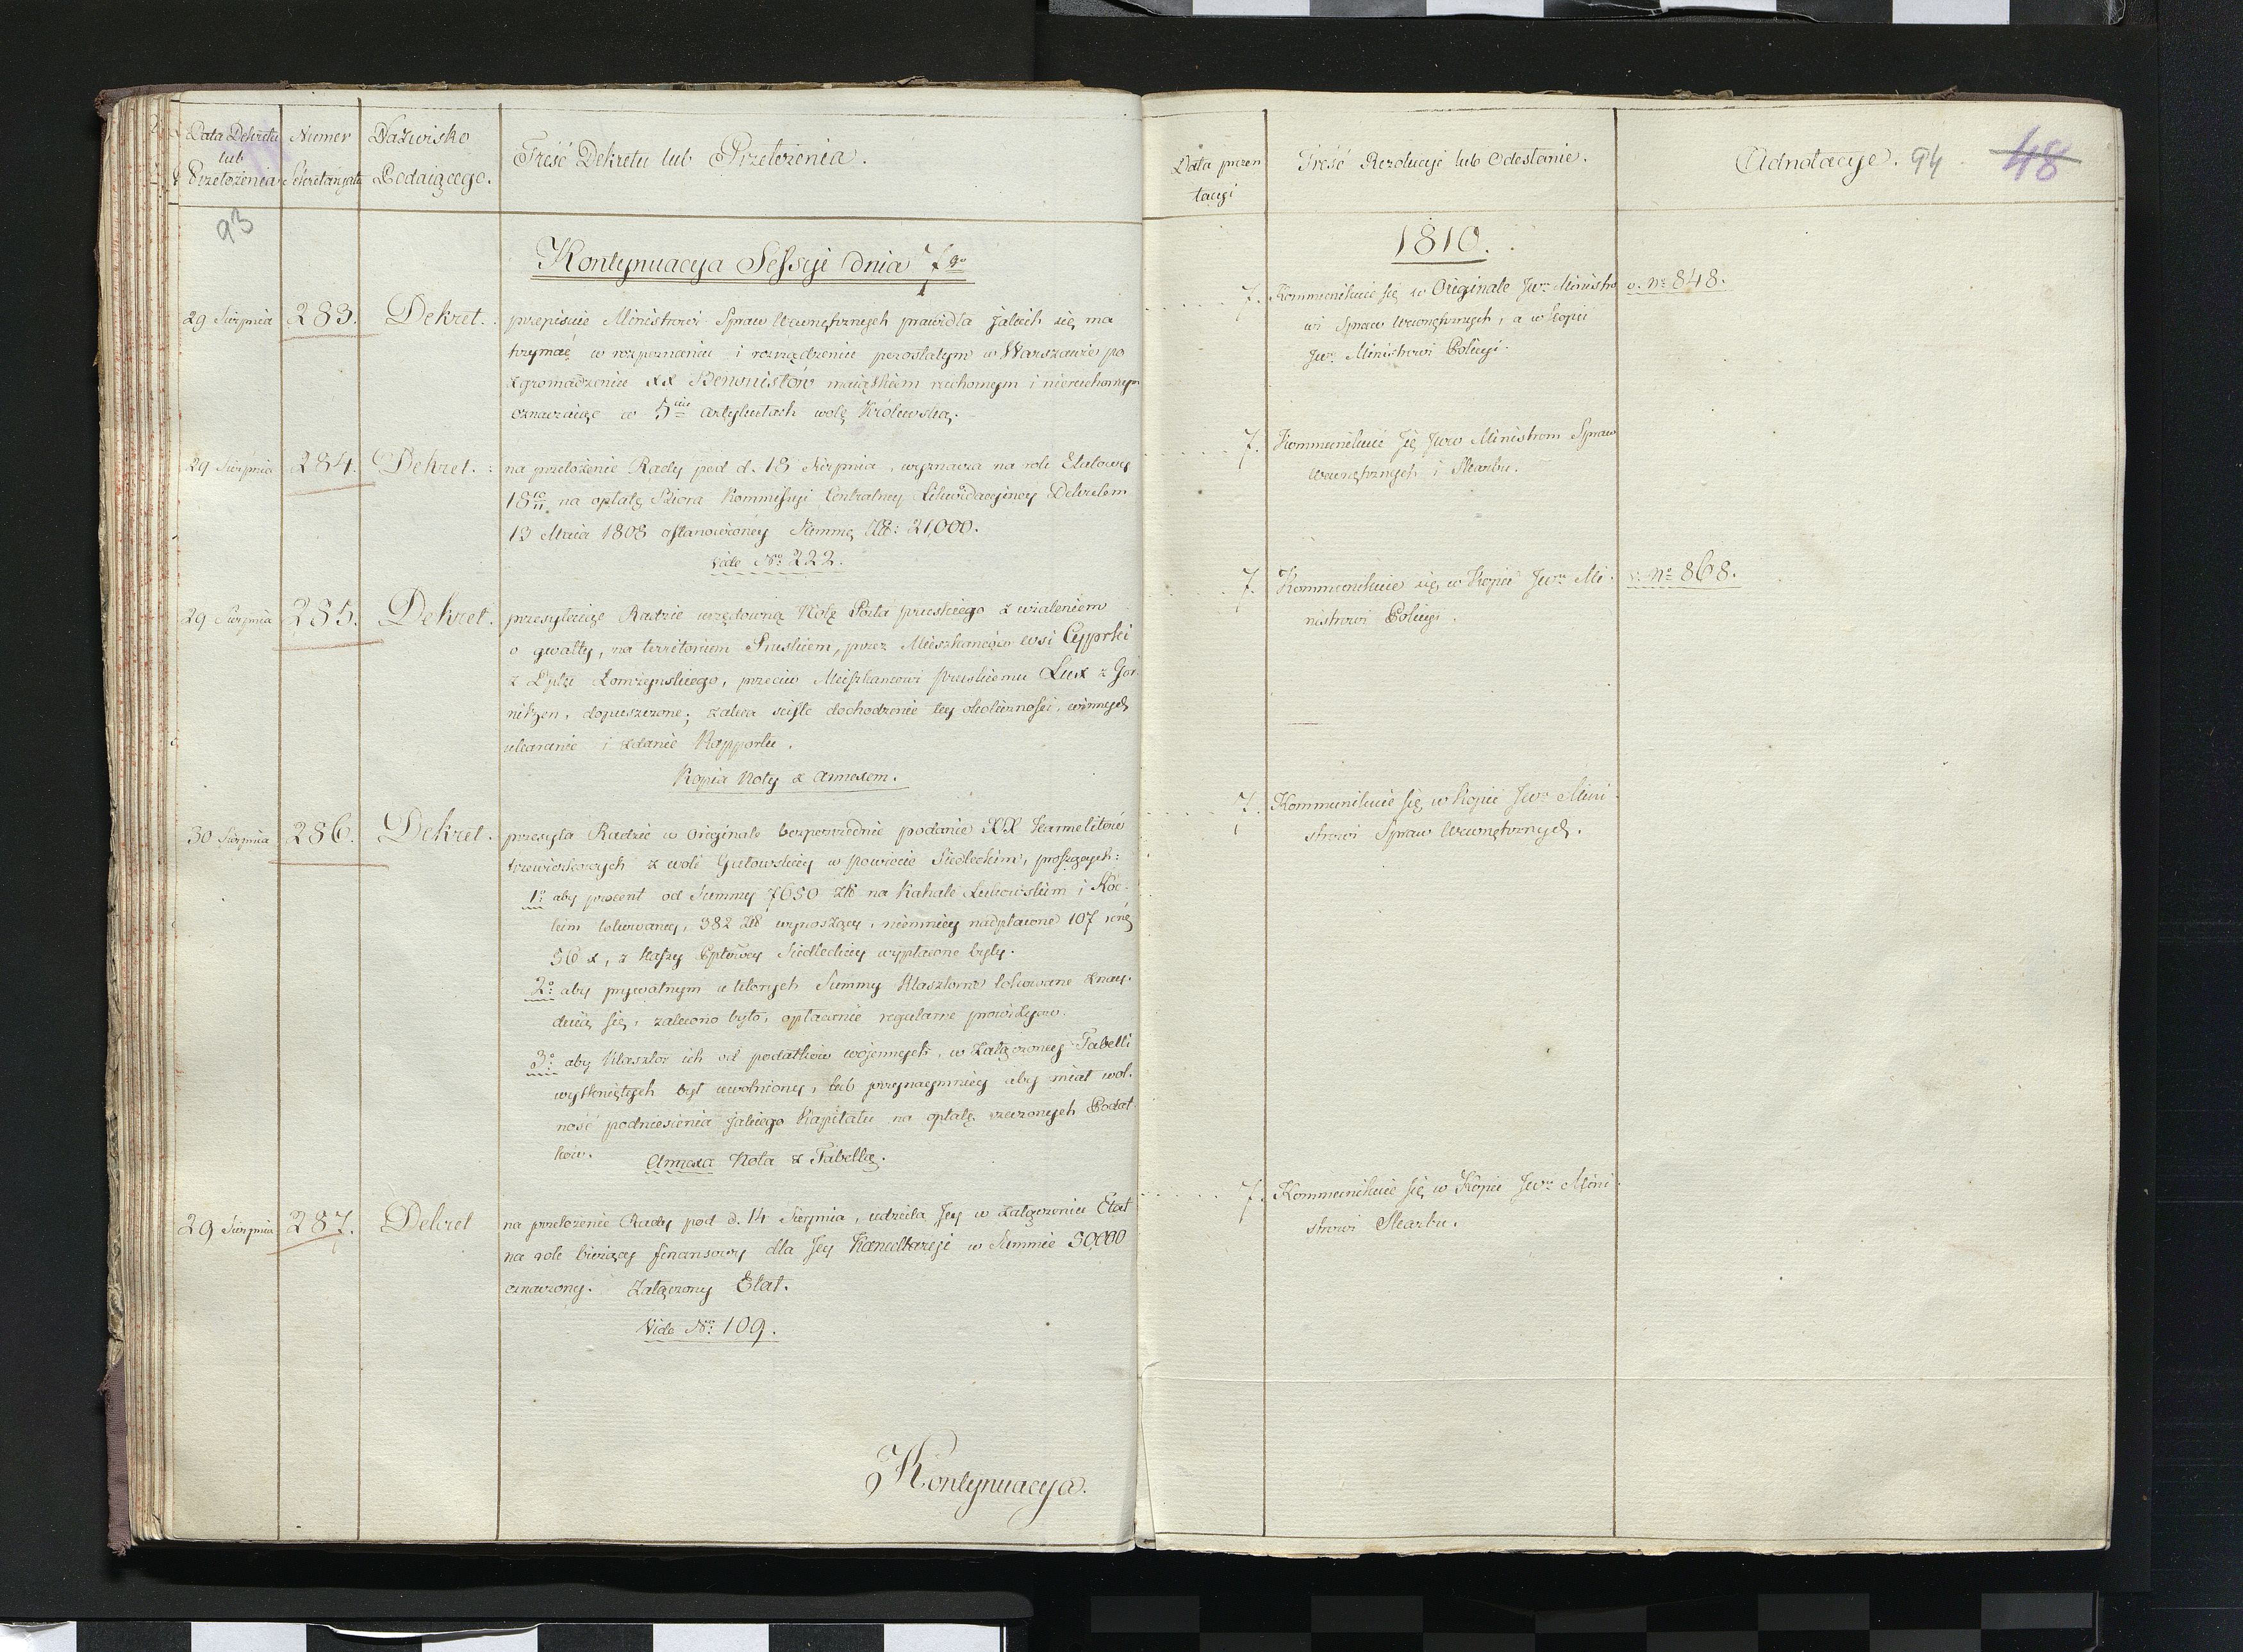 Data Dekretu lub Przełożenia
Numer Sekretaryatu
Nazwisko Podaiącego.
Treść Dekretu lub Przełożenia.
Data prezentacyi
Treść Rezolucyi lub Odesłanie.
Adnotacye. 94 48
93
Kontynuacya Sessyi dnia 7go
1810.
29 Sierpnia 283. Dekret. przepisuie Ministrowi Spraw Wewnętrznych prawidła jakich się ma
trzymać w rozpoznaniu i rozrządzeniu pozostałym w Warszawie po
zgromadzeniu XX Benonistów maiątkiem ruchomym i nieruchomym
oznaczaiąc w 5ciu artykułach wolę Królewską.
7. Kommunikuie się w Originale Jwu Ministro
wi Spraw Wewnętrznych, a w kopii
Jwu Ministrowi Policyi.
v. No 848.
29 Sierpnia 284. Dekret. na przełożenie Rady pod d. 18 Sierpnia, wyznacza na rok Etatowy
18 10/11 na opłatę Biora Kommissyi Centralney Likwidacyiney Dekretem
13 Maia 1808 ustanowioney Summę Złł: 21,000.
vide No 222.
7. Kommunikuie się Jww Ministrom Spraw
Wewnętrznych i Skarbu.
29 Sierpnia 285. Dekret. przesyłaiąc Radzie urzędowną Notę Posła pruskiego z użaleniem
o gwałty, na territorium Pruskiem, przez Mieszkańców wsi Cyprki
z Dptu Łomżyńskiego, przeciw Mieszkancowi pruskiemu Lux z Gor
nitzen, dopuszczone; zaleca scisłe dochodzenie tey okoliczności, winnych
ukaranie i zdanie Rapportu.
Kopia Noty z annexem.
7. Kommunikuie się w Kopii Jwu Mi
nistrowi Policyi.
v. No 868.
30 Sierpnia 286. Dekret. przesyła Radzie w Originale bezpośrednie podanie XX Karmelitów
trzewiczkowych z woli Gutowskiey w powiecie Siedleckim, proszących:
1o aby procent od Summy 7650 złł na Kahale Łukowskim i Koc
kim lokowaney, 382 złł wynoszący, niemniey nadpłacone 107
56 x, z kassy Dptowey Siedleckiey wypłacone były.
2o aby prywatnym u których Summy Klasztorne lokowane znay
duią się, zalecono było, opłacenie regularne prowizyow.
3o aby Klasztor ich od podatków wojennych, w załączoney Tabelli
wytkniętych był uwolniony, lub przynaymniey aby miał wol
ność podniesienia jakiego Kapitału na opłatę rzeczonych Podat
ków. Annexa Nota z Tabellą.
7. Kommunikuie się w kopii Jwu Mini
strowi Spraw Wewnętrznych.
29 Sierpnia 287. Dekret na przełożenie Rady pod d. 14 Sierpnia, udziela Jey w załączeniu Etat
na rok bieżący finansowy dla Jey Kancellaryi w Summie 30,000
oznaczony. Załączony Etat.
Vide No 109.
7. Kommunikuie się w Kopii Jwu Mini
strowi Skarbu.
Kontynuacya.